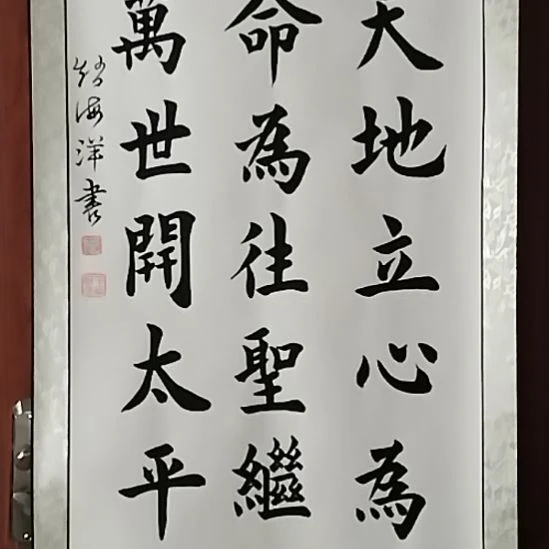 天地立心為
命為往聖繼
萬世開太平
海洋書